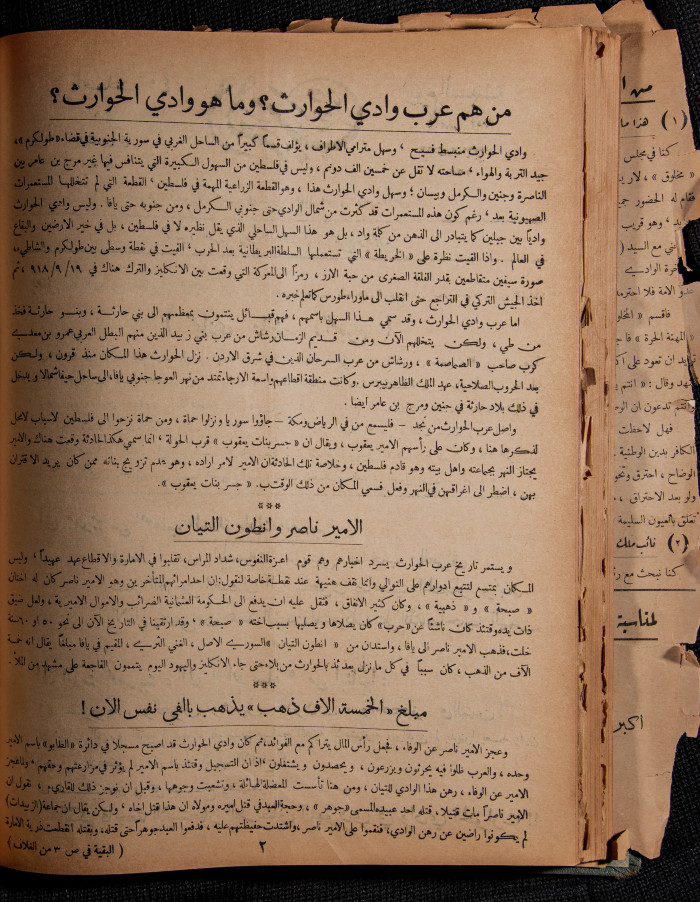 من هم عرب وادي الحوارث؟ وما هو وادي الحوارث؟
وادي الحوارث منبسط فسيح ، وسهل مترامي الاطراف ، يؤلف قسماً كبيراً من الساحل الغربي في سورية الجنوبية في قضاء «طولكرم» ،
جيد التربة والهواء ، مساحته لا تقل عن خمسين الف دونم ، وليس في فلسطين من السهول الكبيرة التي يتنافس فيها غير مرج بن عامر بين
الناصرة وجنين والكرمل وبيسان ؛ وسهل وادي الحوارث هذا ، وهو القطعة الزراعية المهمة في فلسطين ، القطعة التي لم تتخللها المستعمرات
الصهيونية بعد ، رغم كون هذه المستعمرات قد كثرت من شمال الوادي حتى جنوبي الكرمل ، ومن جنوبه حتى يافا . وليس وادي الحوارث
وادياً بين جبلين كما يتبادر الى الذهن من كلمة واد ، بل هو هذا السهل الساحلي الذي يقل نظيره لا في فلسطين ، بل في خير الارضين والبقاع
في العالم . واذا القيت نظرة على « الخريطة » التي تستعملها السلطة البريطانية بعد الحرب ، الفيت في نقطة وسطى بين طولكرم والشاطيء ،
صورة سيفين متقاطعين بقدر الفلقة الصغرى من حبة الارز ، رمزاً الى المعركة التي وقعت بين الانكليز والترك هناك في ١٩ / ٩ / ٩١٨ ، ثم
اخذ الجيش التركي في التراجع حتى انقلب الى ماوراء طورس كما تعلم خبره .
اما عرب وادي الحوارث ، وقد سمي هذا السهل باسمهم ، فهم قبائل ينتمون بمعظمهم الى بني حارثة ، وبنو حارثة فخذ
من طي ، ولكن يتخللهم الآن ومن قديم الزمان رشاش من عرب بني زبيد الذين منهم البطل العربي عمرو بن معدي
كرب صاحب « الصمصامة » ، ورشاش من عرب السرحان الذين في شرق الاردن . نزل الحوارث هذا المكان منذ قرون ، ولكن
بعد الحروب الصلاحية ، عهد الملك الظاهر بيبرس . وكانت منطقة اقطاعهم واسعة الارجاء تمتد من نهر العوجا جنوبي يافا ، الى ساحل حيفا شمالا ويدخل
في ذلك بلاد حارثة في جنين ومرج بن عامر ايضا .
واصل عرب الحوارث من نجد - فليسمع من في الرياض ومكة - جاؤوا سوريا ونزلوا حماة ، ومن حماة نزحوا الى فلسطين لاسباب لا محل
لذكرها هنا ، وكان على رأسهم الامير يعقوب ، ويقال ان « جسر بنات يعقوب » قرب الحولة ، انما سمي هكذا لحادثة وقعت هناك والامير
يجتاز النهر بجماعته واهل بيته وهو قادم فلسطين ، وخلاصة تلك الحادثة ان الامير لامر اراده ، وهو عدم تزويج بناته ممن كان يريد الاقتران
بهن ، اضطر الى اغراقهن في النهر وفعل فسمي المكان من ذلك الوقت بـ « جسر بنات يعقوب » .
***
الامير ناصر وانطون التيان
ويستمر تاريخ عرب الحوارث يسرد اخبارهم وهم قوم اعزة النفوس ، شداد المراس ، تقلبوا في الامارة والاقطاع عهد عهيدا ، وليس
المكان بمتسع لنتتبع ادوارهم على التوالي وانما نقف هنيهة عند نقطة خاصة لنقول : ان احد امرائهم المتأخرين وهو الامير ناصر كان له اختان
« صبيحة » و « ذهبية » ، وكان كثير الانفاق ، فثقل عليه ان يدفع الى الحكومة العثمانية الضرائب والاموال الاميرية ، ولعل ضيق
ذات يده وقتئذ كان ناشئاً عن «حرب» كان يصلاها ويصليها بسبب اخته « صبيحة » ، وقد ارتقينا في التاريخ الآن الى نحو ٥٠ او ٦٠ سنة
خلت ، فذهب الامير ناصر الى يافا ، واستدان من « انطون التيان » السوري الاصل ، الغني الثري ، المقيم في يافا مبلغاً يقال انه خمسة
آلاف من الذهب ، كان سبباً في كل ما نزل بعدئذ بالحوارث من بلاء حتى جاء الانكليز واليهود اليوم يتممون الفاجعة على مشهد من الملأ .
***
مبلغ « الخمسة الاف ذهب » يذهب بالفي نفس الان !
وعجز الامير ناصر عن الوفاء ، فجعل رأس المال يتراكم مع الفوائد ، ثم كان وادي الحوارث قد اصبح مسجلا في دائرة «الطابو» باسم الامير
وحده ، والعرب ظلوا فيه يحرثون ويزرعون ، ويحصدون ويشتغلون ، اذ ان التسجيل وقتئذ باسم الامير لم يؤثر في مزارعتهم وحقهم . ولما عجز
الامير عن الوفاء ، رهن هذا الوادي للتيان ، ومن هنا تأسست المعضلة الهائلة ، وتشعبت وجوهها ، وقبل ان نوجز ذلك للقاريء ، نقول ان
الامير ناصراً مات قتيلا ، قتله احد عبيده المسمى «جوهر» ، وحجة العبد في قتل اميره ومولاه ان هذا قتل اخاه . ولكن يقال ان جماعة (الزبيدات)
لم يكونوا راضين عن رهن الوادي ، فنقموا على الامير ناصر ، واشتدت حفيظتهم عليه ، فدفعوا العبد جوهراً حتى قتله ، وبقتله انقطعت ذرية الامارة
٢
( البقية في ص ٣ من الغلاف )
(١) هذا ما
كنا في مجلس
« مخلوق » ،
فقام له الحضور
(٢) نائب ملك
لمناسبة
اكبر